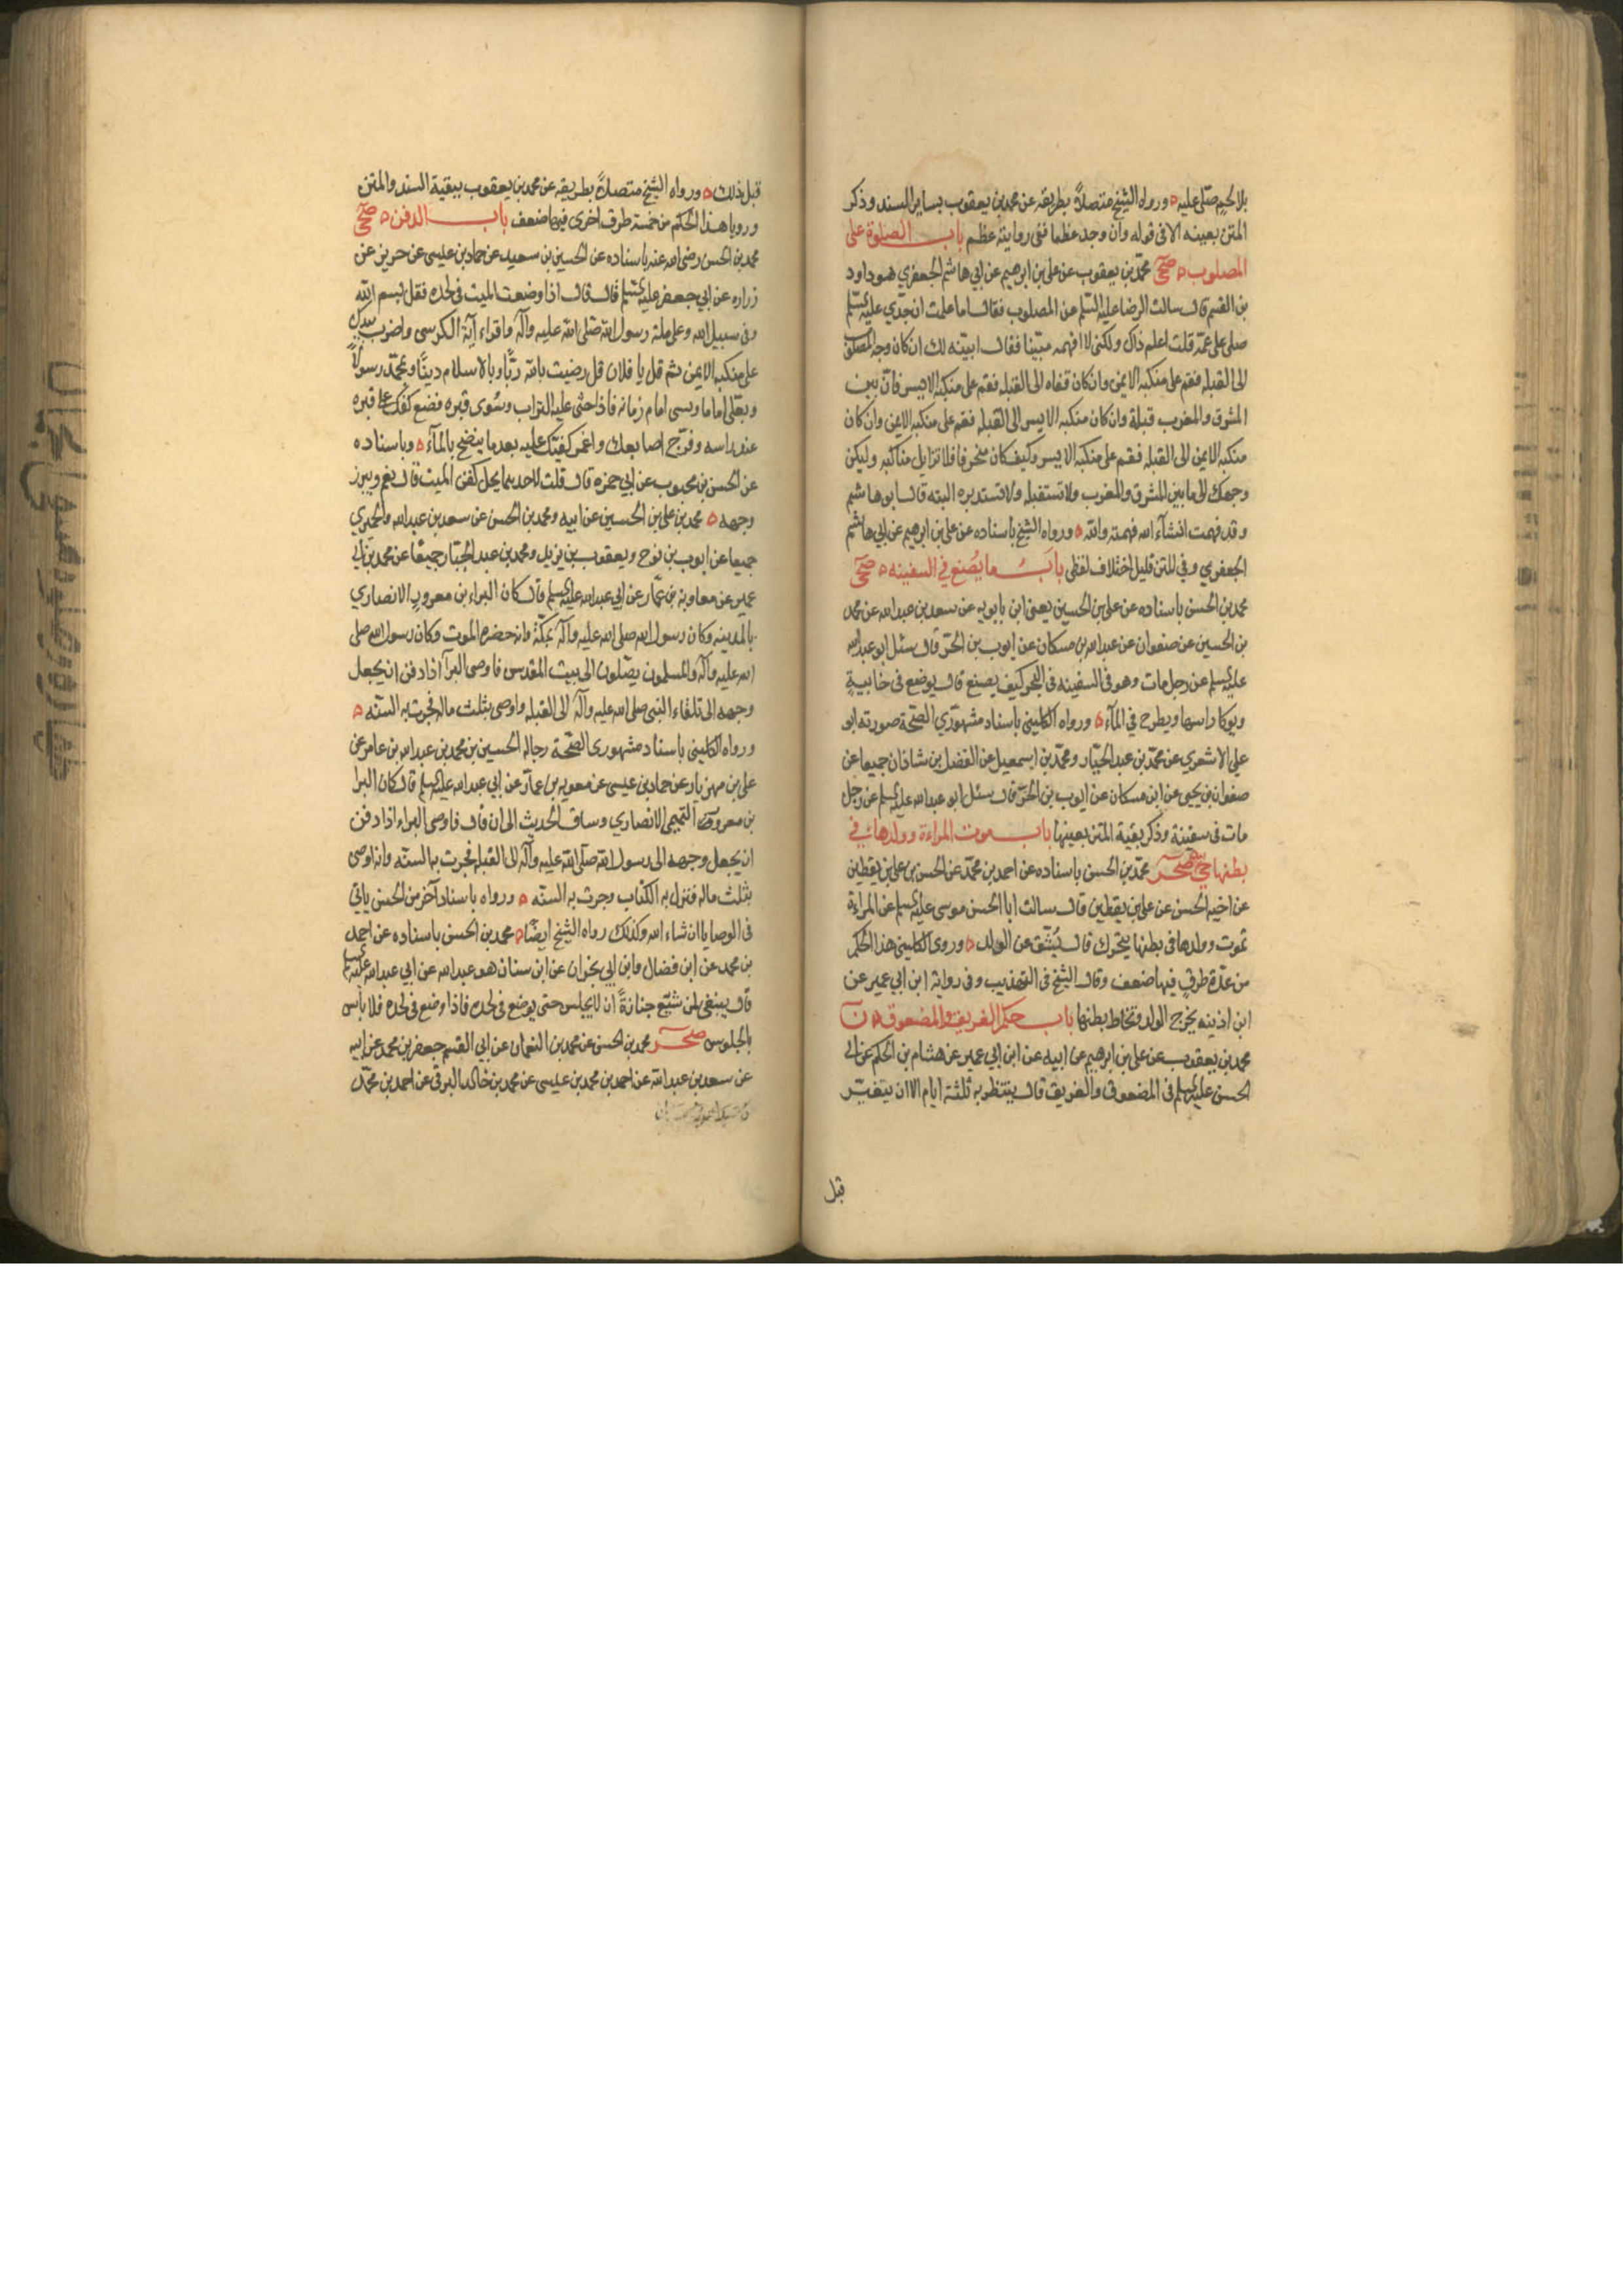 بلا لحم صلّى عليه ورواه الشيخ متصلاً بطريقه عن محمد بن يعقوب بساير السند وذكر
المتن بعينه الا في قوله وان وجد عظما ففي روايته عظم باب الصلوة على
المصلوب صحي محمّد بن يعقوب عن علي بن ابرهيم عن ابي هاشم الجعفري هو داود
بن القسم قال سالت الرضا عليه السّلم عن المصلوب فقال اما علمت ان جدّي عليه السّلم
صلى على عمّه قلت اعلم ذاك ولكنى لا افهمه مبيّنا فقال ابيّنه لك ان كان وجه المصلوب
الى القبلة فقم على منكبه الايمن وان كان قفاه الى القبلة فقم على منكبه الايسر فان بين
المشرق والمغرب قبلة وان كان منكبه الايسر الى القبلة فقم على منكبه الايمن وان كان
منكبه الايمن الى القبلة فقم على منكبه الايسر وكيف كان منحرفا فلا تزايل مناكبه وليكن
وجهك الى ما بين المشرق والمغرب ولا تستقبله ولا تستدبره البته قال ابو هاشم
وقد فهمت انشآء الله فهمته والله ورواه الشيخ باسناده عن علي بن ابرهيم عن ابي هاشم
الجعفري وفي المتن قليل اختلاف لفظى باب ما يصنع في السفينه صحي
محمد بن الحسن باسناده عن علي بن الحسين يعنى ابن بابويه عن سعد بن عبد الله عن محمد
بن الحسين عن صفوان عن عبد الله بن مسكان عن ايوب بن الحرّ قال سئل ابو عبد الله
عليه السلم عن رجل مات وهو في السفينه في البحر كيف يصنع قال يوضع في خابيةٍ
ويوكا راسها ويطرح في المآء ورواه الكليني باسناد مشهوريّ الصّحّة صورته ابو
علي الاشعري عن محمّد بن عبد الجبّار ومحمّد بن اسمعيل عن الفضل بن شاذان جميعا عن
صفوان بن يحيى عن ابن مسكان عن ايوب بن الحرّ قال سئل ابو عبد الله عليه السلم عن رجل
مات في سفينة وذكر بقية المتن بعينها باب موت المراءة وولدها في
بطنها حيّ صحر محمّد بن الحسن باسناده عن احمد بن محمّد عن الحسن بن علي بن يقطين
عن اخيه الحسن عن علي بن يقطين قال سالت ابا الحسن موسى عليه السلم عن المراءة
تموت وولدها في بطنها يتحرك قال يُشّق عن الولد وروى الكليني هذا الحكم
من عدّة طرق فيها ضعف وقال الشيخ في التهذيب وفي رواية ابن ابي عمير عن
ابن اذينه يخرج الولد وتخاط بطنها باب حكم الغريق والمصعوق ن
محمد بن يعقوب عن علي بن ابرهيم عن ابيه عن ابن ابي عمير عن هشام بن الحكم عن ابي
الحسن عليه السلم في المصعوق والغريق قال ينتظر به ثلثة ايام الا ان يتغيّر
قبل
قبل ذلك ورواه الشيخ متصلاً بطريقه عن محمد بن يعقوب ببقية السند والمتن
ورويا هذا الحكم من خمسة طرق اخرى فيها ضعف باب الدفن صحي
محمد بن الحسن رضى الله عنه باسناده عن الحسين بن سعيد عن حماد بن عيسى عن حريز عن
زراره عن ابي جعفر عليه السلم قال قال اذا وضعت الميت في لحده فقل بسم الله
وفي سبيل الله وعلى ملة رسول الله صلى الله عليه وآله واقراء آية الكرسى واضرب بيدك
على منكبه الايمن ثم قل يا فلان قل رضيت بالله ربًّا وبالاسلام دينًا وبمحمّد رسولاً
وبعلى اماما ويسمى امام زمانه فاذا حثى عليه التراب وسُوى قبره فضع كفك على قبره
عند راسه وفرّج اصابعك واغمز كفّك عليه بعد ما ينضح بالمآء وباسناده
عن الحسن بن محبوب عن ابي حمزه قال قلت لاحدهما يحل كفن الميت قال نعم ويبرز
وجهه محمد بن علي بن الحسين عن ابيه ومحمد بن الحسن عن سعد بن عبد الله والحميري
جميعا عن ايوب بن نوح ويعقوب بن يزيد ومحمد بن عبد الجبّار جميعًا عن محمد بن ابي
عمير عن معاوية بن عمّار عن ابي عبد الله عليه السلم قال كان البراء بن معرور الانصاري
بالمدينه وكان رسول الله صلى الله عليه وآله بمكّة وانه حضره الموت وكان رسول الله صلى
الله عليه وآله والمسلمون يصّلون الى بيت المقدس فاوصى البرآ اذا دفن ان يجعل
وجهه الى تلقاء النبى صلى الله عليه وآله الى القبلة واوصى بثلث ماله فجرت به السنّه
ورواه الكليني باسناد مشهورى الصّحّة رجاله الحسين بن محمد بن عبد الله بن عامر عن
علي بن مهزيار عن حماد بن عيسى عن معويه بن عمار عن ابي عبد الله عليه السلم قال كان البرا
بن معرور التميمى الانصاري وساق الحديث الى ان قال فاوصى البراء اذا دفن
ان يجعل وجهه الى رسول الله صلى الله عليه وآله الى القبلة فجرت بها السنّه وانه اوصى
بثلث ماله فنزل به الكتاب وجرت به السنّه ورواه باسناد آخر من الحسن ياتي
في الوصايا ان شاء الله وكذلك رواه الشيخ ايضًا محمد بن الحسن باسناده عن احمد
بن محمد عن ابن فضال وابن ابي نجران عن ابن سنان هو عبد الله عن ابي عبد الله عليه السلم
قال ينبغى لمن شيّع جنازةً ان لا يجلس حتى يوضع في لحده فاذا وضع في لحده فلا باس
بالجلوس صحر محمد بن الحسن عن محمد بن النعمان عن ابي القسم جعفر بن محمد عن ابيه
عن سعد بن عبد الله عن احمد بن محمد بن عيسى عن محمد بن خالد البرقى عن احمد بن محمّد